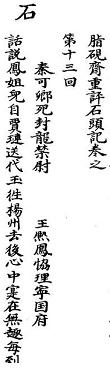 脂硯齋重評石頭記卷之
第十三回
秦可卿死封龍禁尉　王熈鳳協理寧国府
話說鳳姐兒自賈璉送代玉徃楊州去後心中寔在無趣每到
石